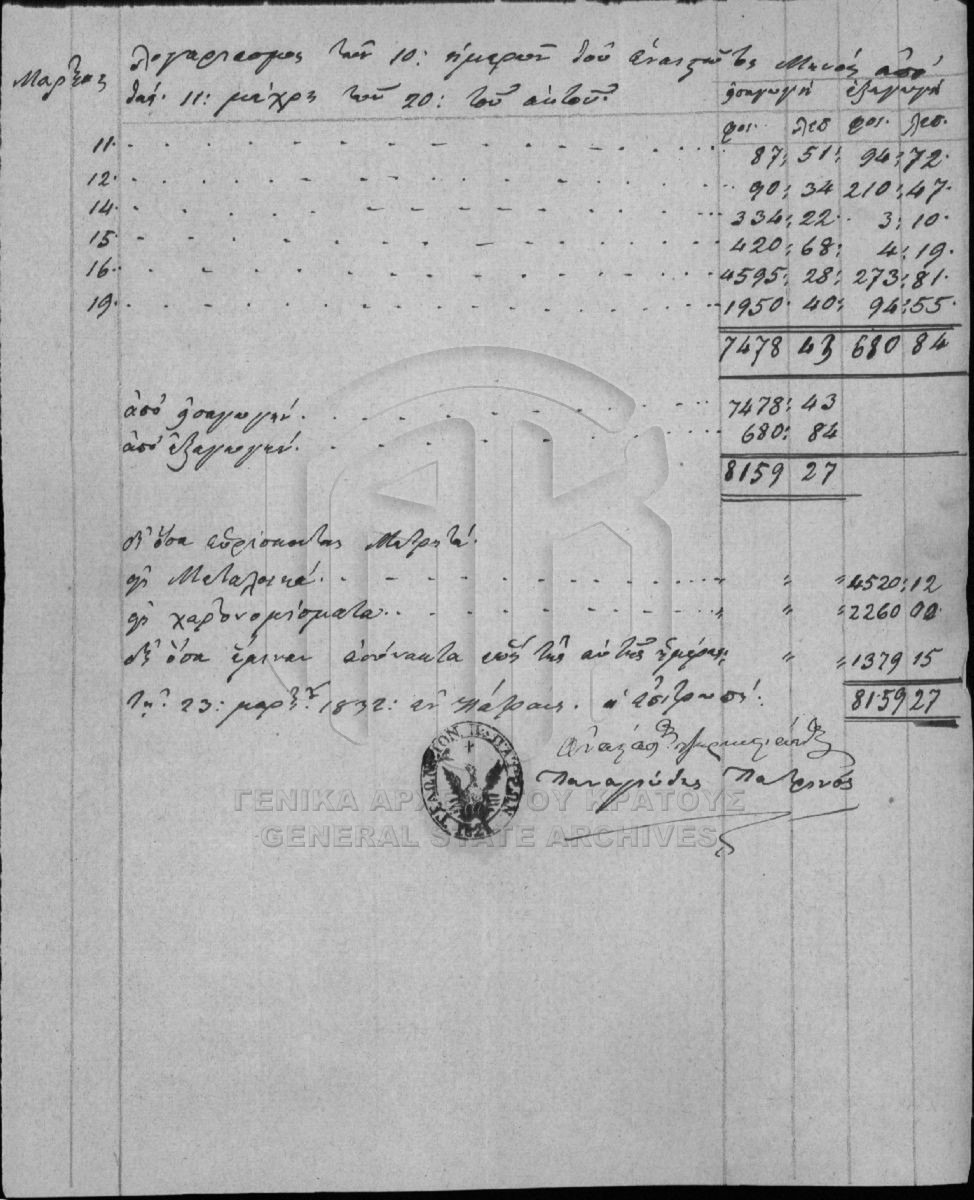 Μαρτιος λογαριασμος τῶν 10: ἡμερῶν τοῦ ἐνεστῶτος Μηνός ἀπό
τάς 11: μέχρι τῶν 20: τοῦ αὐτοῦ.
ἠσαγωγή ἐξαγωγή
φοι. λεπ φοι. λεπ.
11. 87: 51: 94: 72.
12. 90: 34 210: 47.
14. 334: 22. 3: 10.
15. 420: 68: 4: 19.
16. 4595: 28: 273: 81.
19. 1950. 40: 94: 55.
7478 43 680 84
ἀπό ἠσαγωγήν. 7478: 43
ἀπό ἐξαγωγήν. 680: 84
8159 27
ἐξ ὅσα εὑρίσκονται Μετρητά.
εἰς Μεταλικά. " " " 4520: 12
εἰς χαρτονομίσματα. " " " 2260 00
ἐξ ὅσα ἔμειναν ἀσύνακτα ἕως τῆς αὐτῆς ἡμέρας; " " 1379 15
τῇ 23: μαρτίου 1832: ἐν Πάτραις. ἡ ἐπιτροπή. 8159 27
Παναγιώτης Πατρινός
ΤΕΛΩΝΙΟΝ Π. ΠΑΤΡΩΝ
182
ΓΕΝΙΚΑ ΑΡΧΕΙΑ ΤΟΥ ΚΡΑΤΟΥΣ
GENERAL STATE ARCHIVES